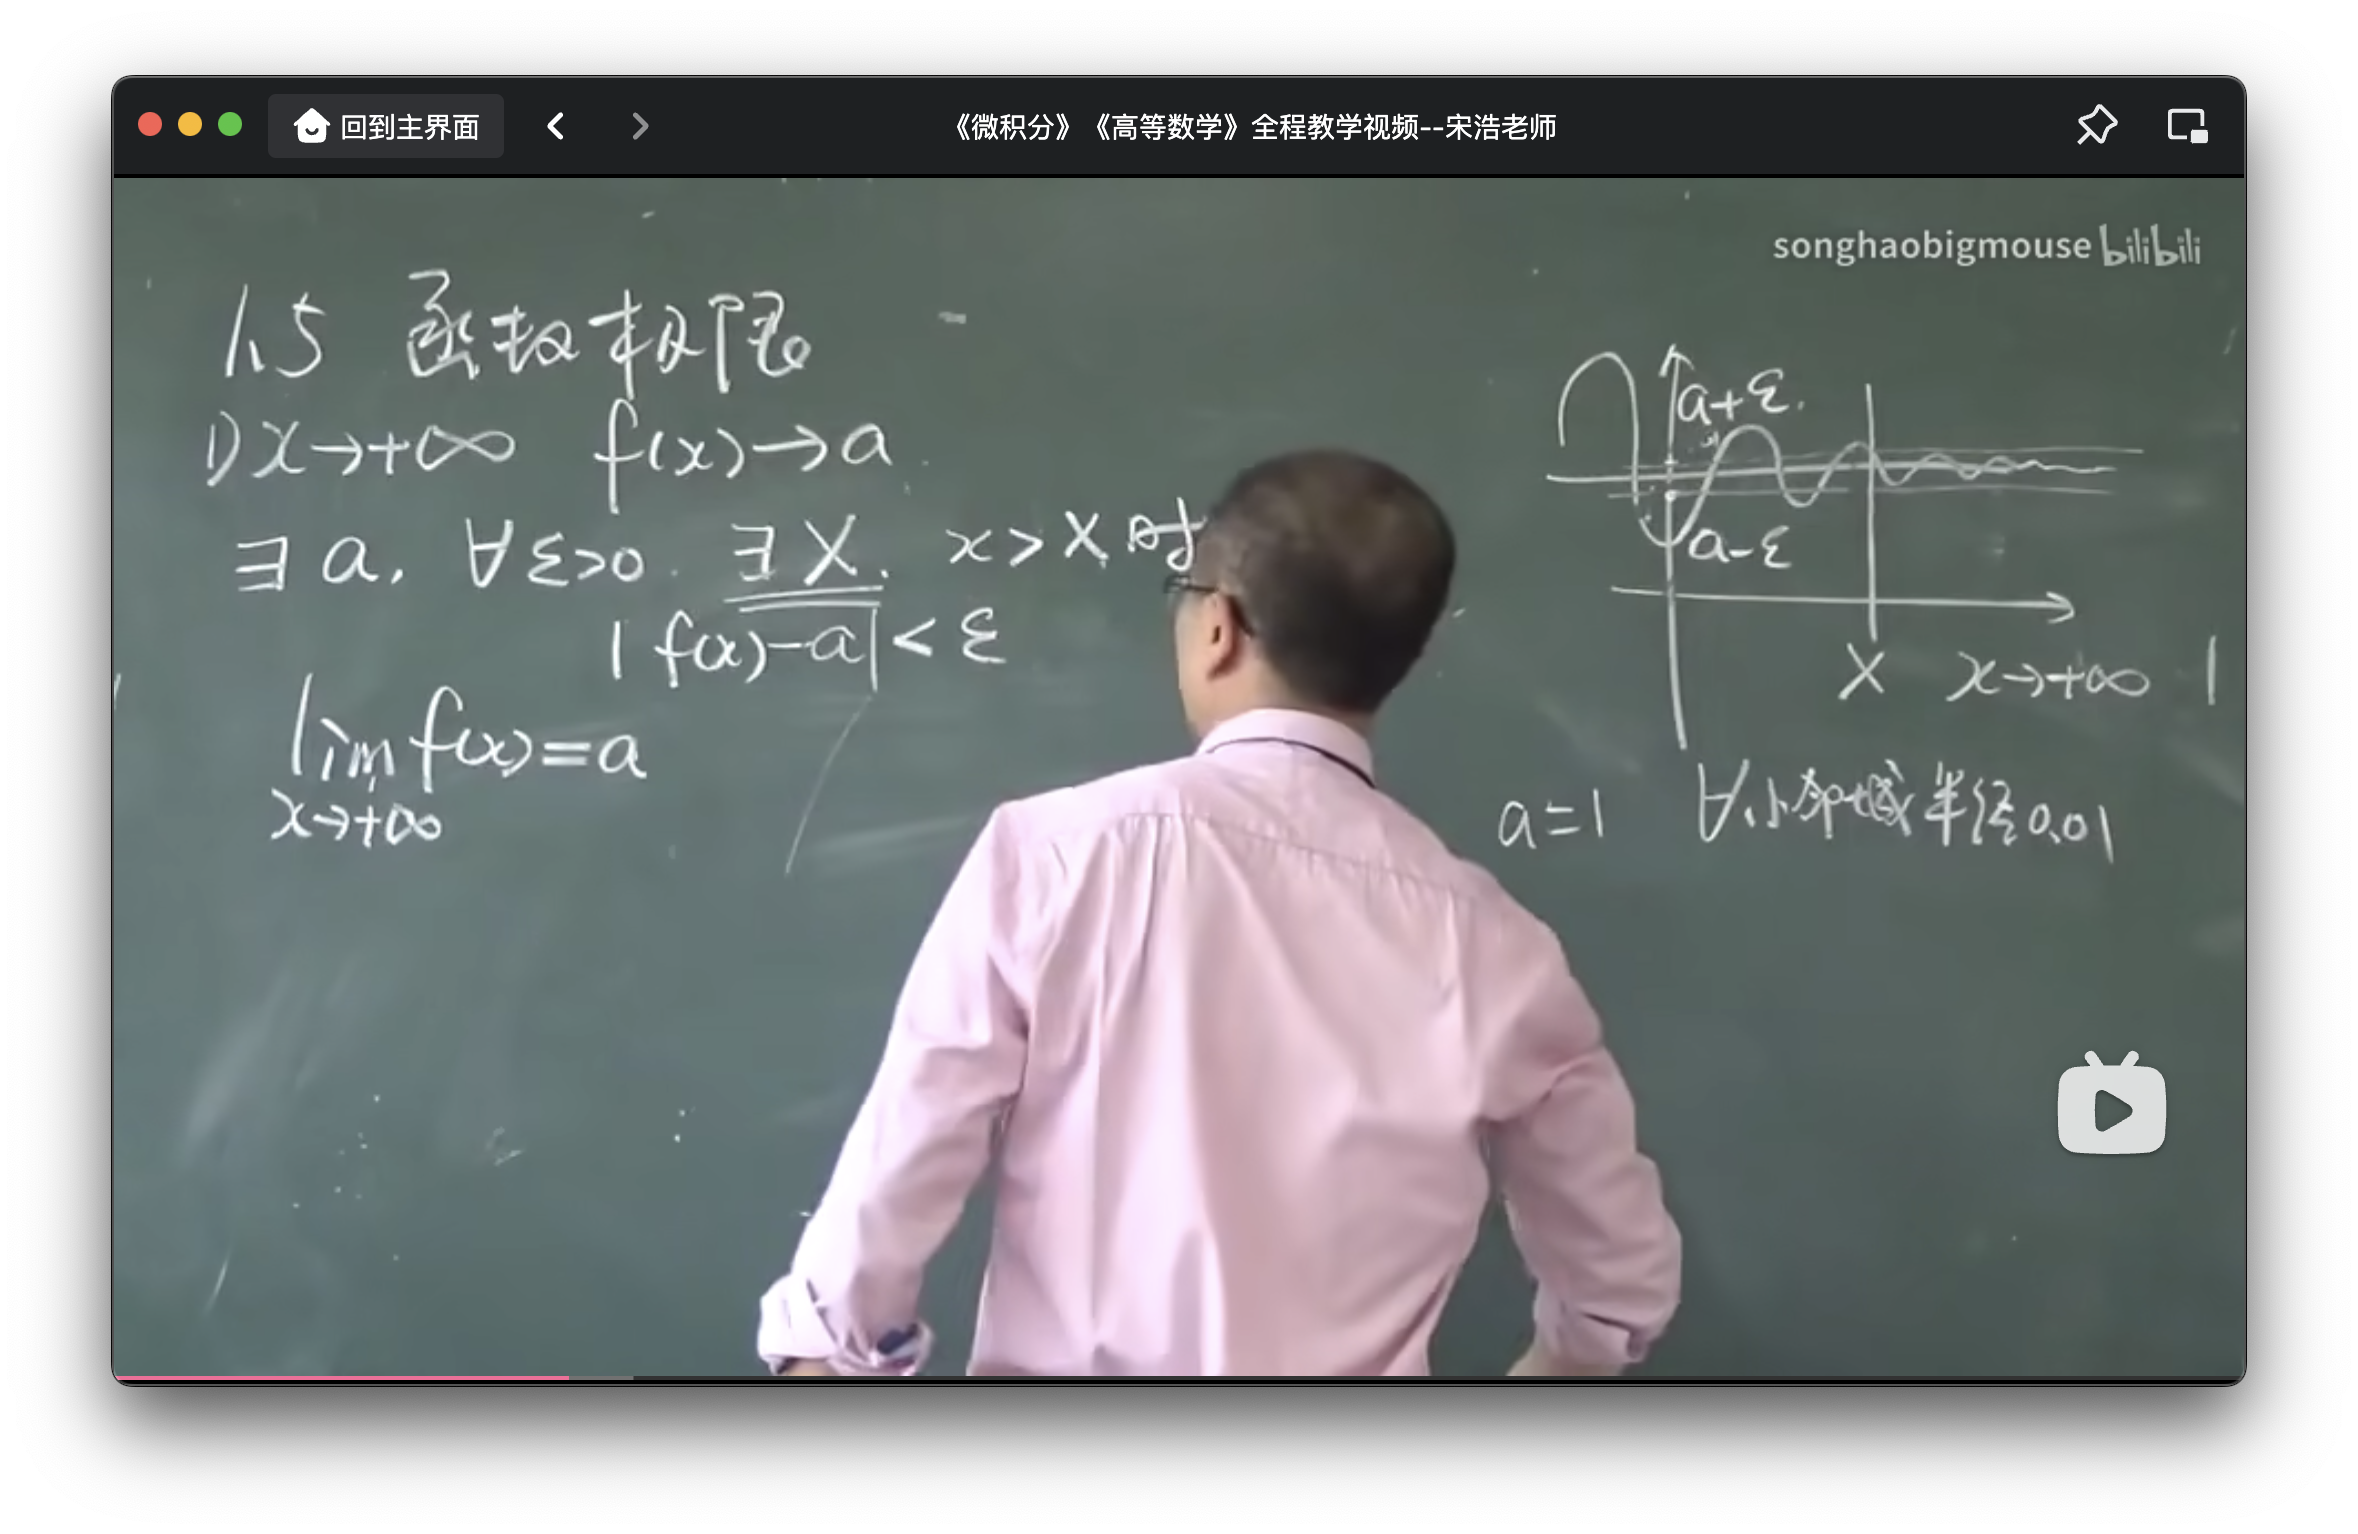 回到主界面
《微积分》《高等数学》全程教学视频--宋浩老师
songhaobigmouse bilibili
1.5 函数极限
1) x→+∞ f(x)→a
∃ a, ∀ε>0. ∃ X. x>X 时
|f(x)-a|<ε
lim f(x)=a
x→+∞
a+ε.
a-ε
X x→+∞ 1
a=1 ∀小邻域半径0.01